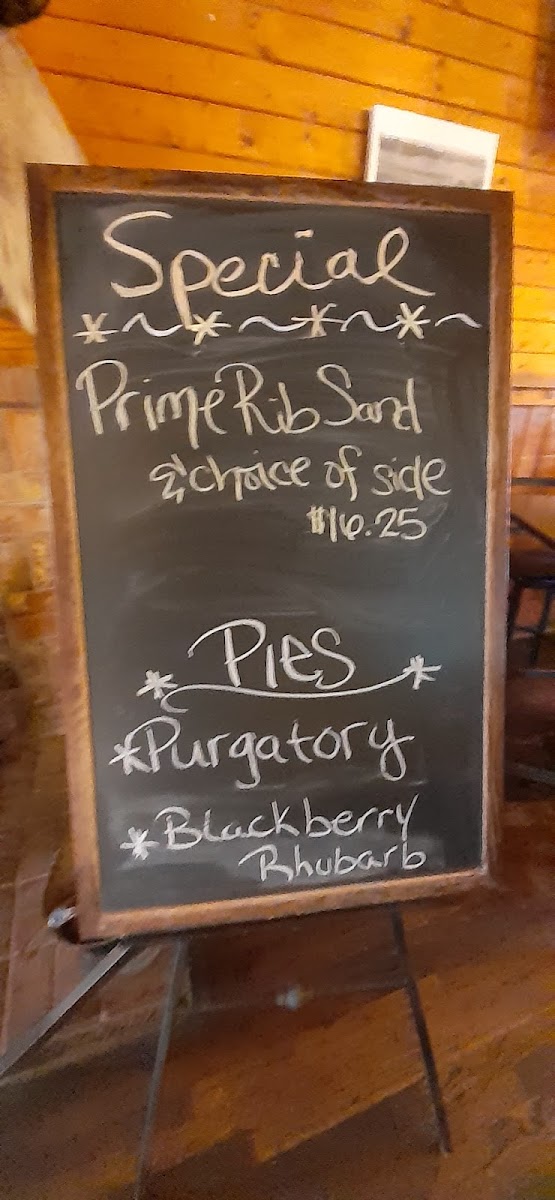 Special
*~*~*~*~
Prime Rib Sand
& choice of side
$16.25
* Pies *
* Purgatory
* Blackberry
Rhubarb